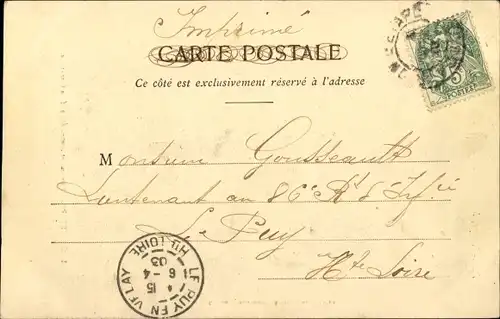 Imprimé
CARTE POSTALE
Ce côté est exclusivement réservé à l'adresse
Monsieur Gousseault
Lieutenant au 86e Rt d'Infie
Le Puy
Hte Loire
LE PUY EN VELAY
HTE LOIRE
4
15
6 - 4
03
POSTES